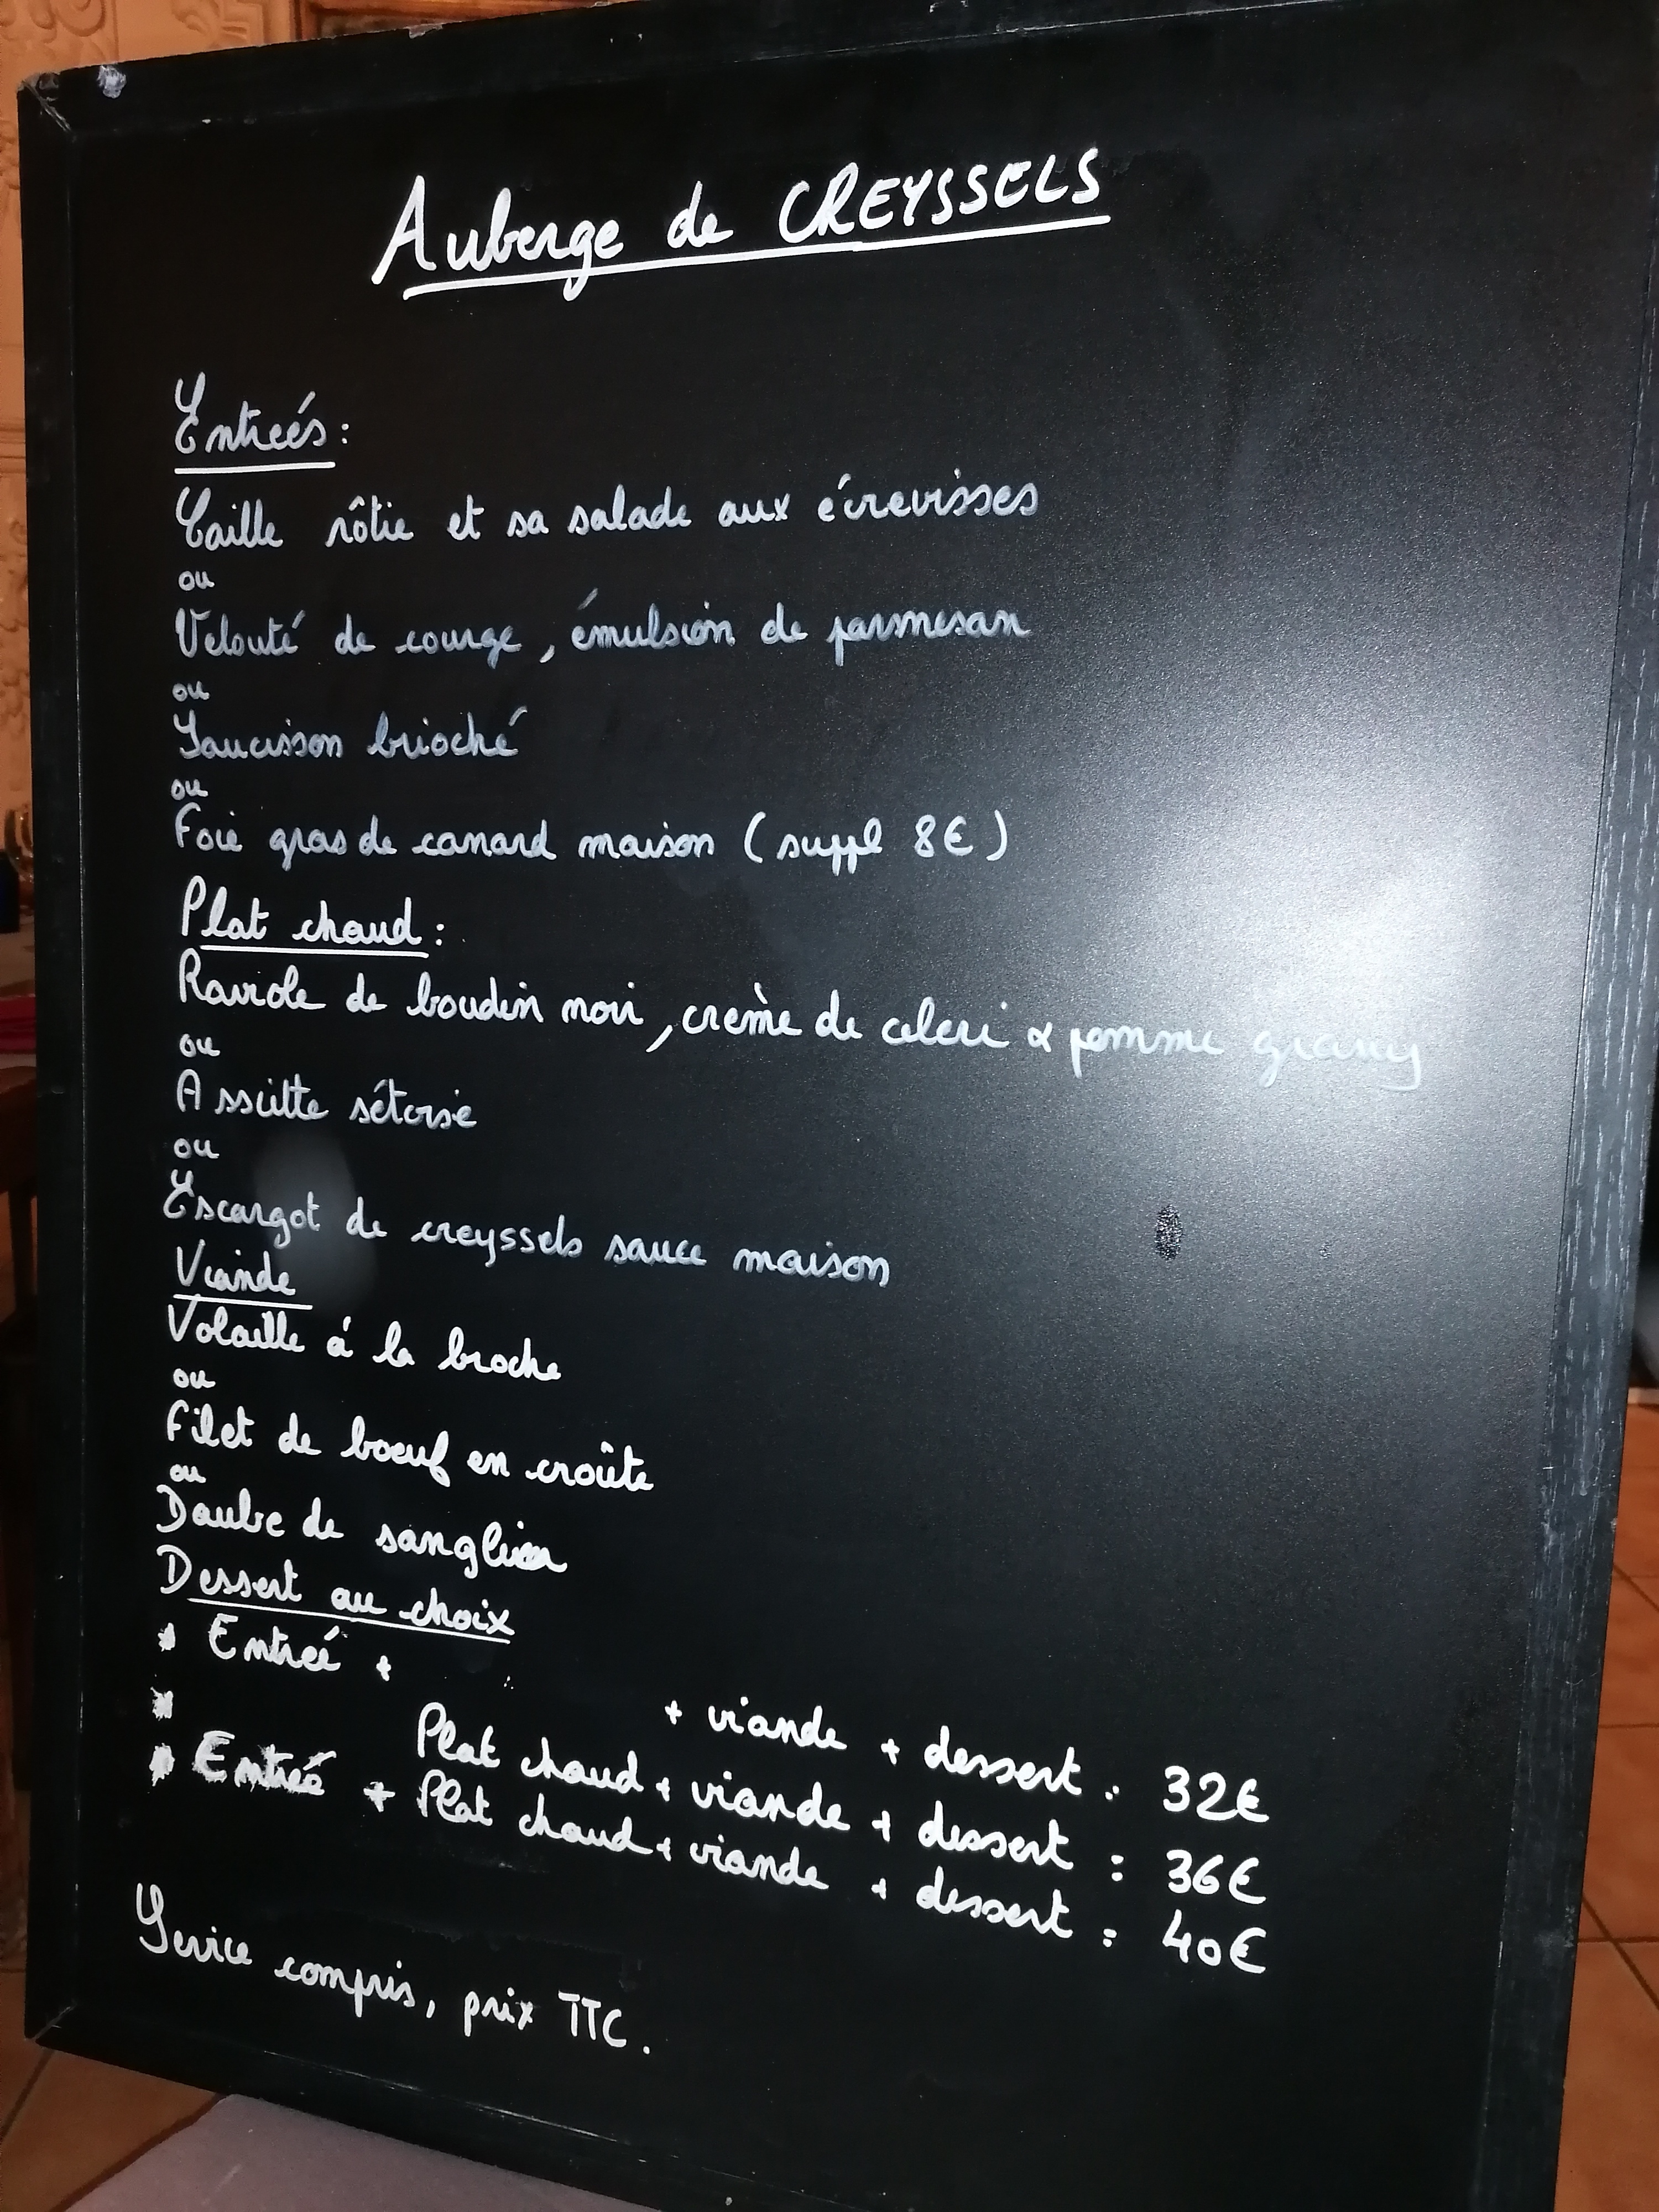 Auberge de CREYSSELS
Entreés:
Caille rôtie et sa salade aux écrevisses
ou
Velouté de courge, émulsion de parmesan
ou
Saucisson brioché
ou
Foie gras de canard maison (suppl 8€)
Plat chaud:
Raviole de boudin noir, crème de celeri & pomme granny
ou
Assiette sétoise
ou
Escargot de creyssels sauce maison
Viande
Volaille á la broche
ou
Filet de boeuf en croûte
ou
Daube de sanglier
Dessert au choix
* Entreé + + viande + dessert : 32€
* Plat chaud + viande + dessert : 36€
* Entreé + Plat chaud + viande + dessert : 40€
Service compris, prix TTC.